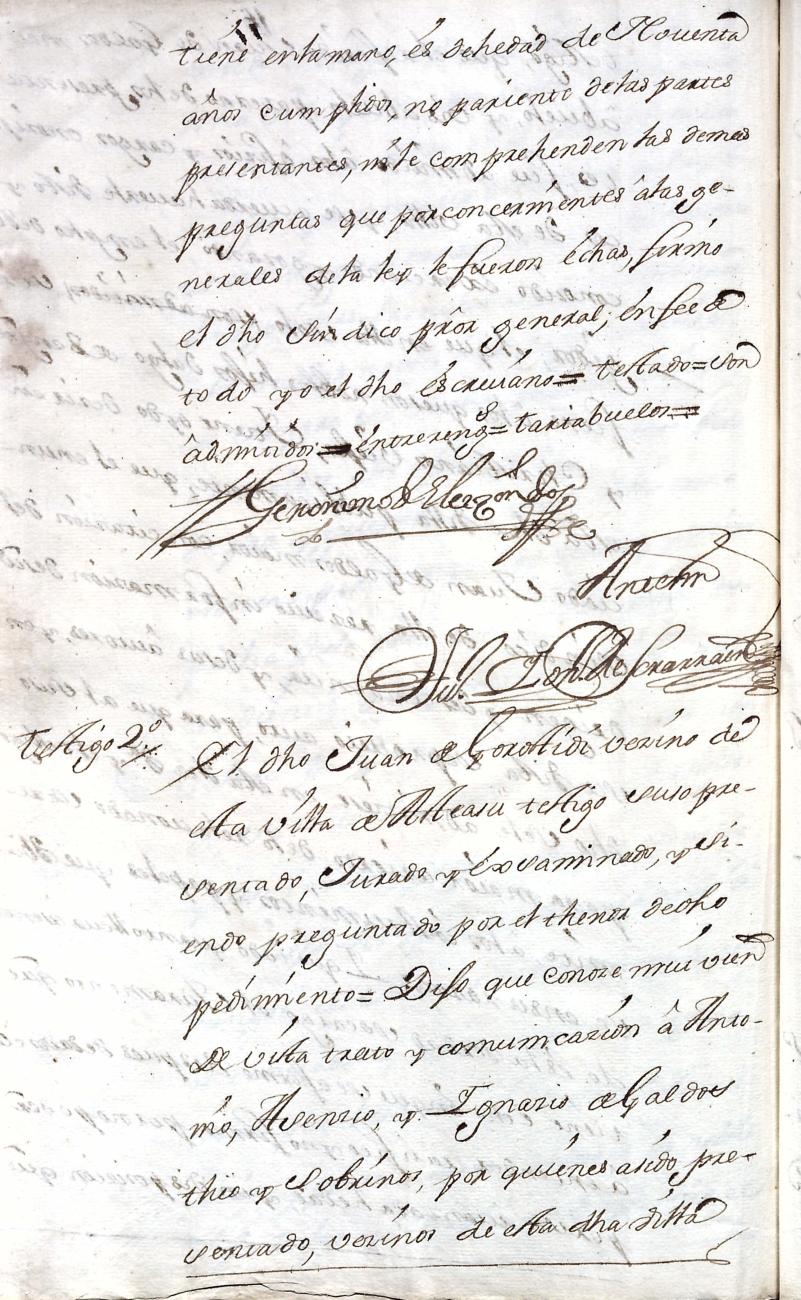 tiene enlamano, és dehedad de Noventa
años cumplidos, no pariente delas partes
presentantes, nile comprehenden las demas
preguntas que porconcernientes âlas ge-
nerales dela ley le fueron échas, firmo
el dho Sindico prôr general; én fee de
todo yo el dho éscrivano = testado = son
âdmitidos = éntrereng.s = tartabuelos =
Geronimo de Elerzondo
Ante mi
de
testigo 2º
El dho Juan de Gorostidi vezino de
esta villa de Asteasu testigo suso pre-
sentado, Jurado y éxsaminado, y si-
endo preguntado por el thenor decho
pedimiento = Dijo que conoze mui vien
de vista trato y comunicazion â Anto-
nio, Asenzio, y Ignazio de Galdos
thio y sobrinos, por quienes asido pre-
sentado, vezinos de esta dha villa